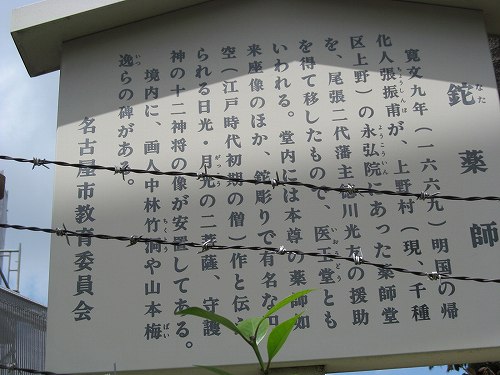 鉈薬師
なた
寛文九年(一六六九)明国の帰
化人張振甫が、上野村(現、千種
ちょうしんぽ
区上野)の永弘院にあった薬師堂
ようこういん
を、尾張二代藩主徳川光友の援助
を得て移したもので、医王堂とも
いおうどう
いわれる。堂内には本尊の薬師如
来座像のほか、鉈彫りで有名な円
空(江戸時代初期の僧)作と伝え
られる日光・月光の二菩薩、守護
がっこう
神の十二神将の像が安置してある。
境内に、画人中林竹洞や山本梅
ちくとう
ばい
逸らの碑がある。
いつ
名古屋市教育委員会